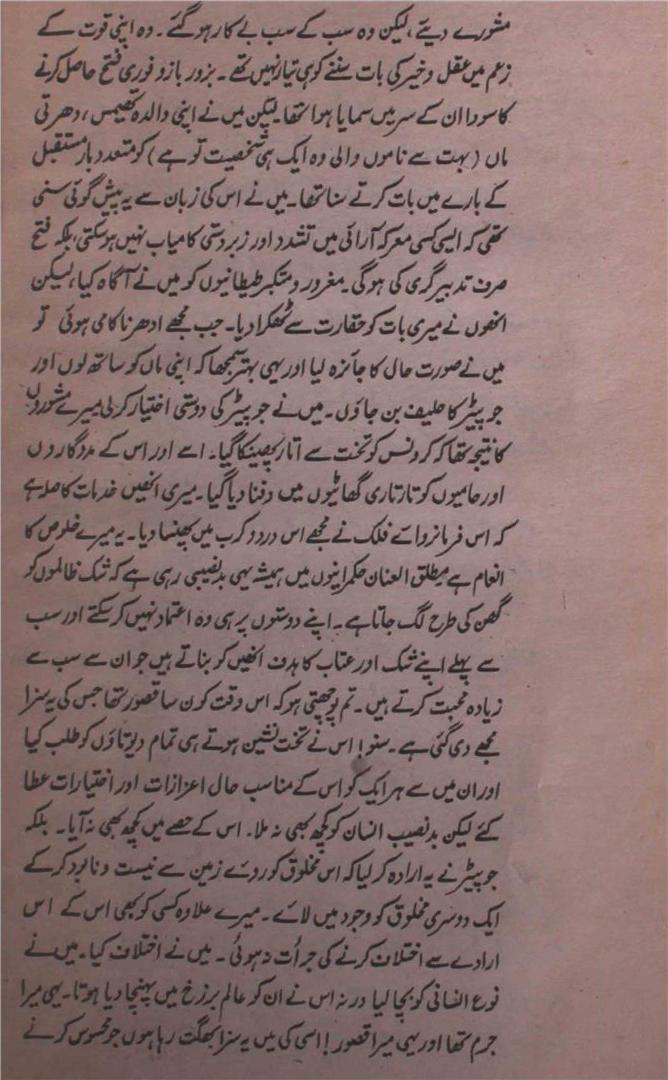 مشورے دیئے، لیکن وہ سب کے سب بے کار ہو گئے۔ وہ اپنی قوت کے
زعم میں عقل و خیر کی بات سننے کو ہی تیار نہیں تھے۔ بزور بازو فوری فتح حاصل کرنے
کا سودا ان کے سر میں سمایا ہوا تھا۔ لیکن میں نے اپنی والدہ تھیمس، دھرتی
ماں (بہت سے ناموں والی وہ ایک ہی شخصیت تو ہے) کو متعدد بار مستقبل
کے بارے میں بات کرتے سنا تھا۔ میں نے اس کی زبان سے یہ پیش گوئی سنی
تھی کہ ایسی کسی معرکہ آرائی میں تشدد اور زبردستی کامیاب نہیں ہو سکتی، بلکہ فتح
صرف تدبیر گری کی ہو گی۔ مغرور و متکبر طیطانیوں کو میں نے آگاہ کیا، لیکن
انھوں نے میری بات کو حقارت سے ٹھکرا دیا۔ جب مجھے ادھر ناکامی ہوئی تو
میں نے صورت حال کا جائزہ لیا اور یہی بہتر سمجھا کہ اپنی ماں کو ساتھ لوں اور
جوپیٹر کا حلیف بن جاؤں۔ میں نے جوپیٹر کی دوستی اختیار کر لی میرے مشوروں
کا نتیجہ تھا کہ کرونس کو تخت سے اتار پھینکا گیا۔ اسے اور اس کے مددگاروں
اور حامیوں کو تارتاری گھاٹیوں میں دفنا دیا گیا۔ میری انھیں خدمات کا صلہ ہے
کہ اس فرمانروائے فلک نے مجھے اس درد و کرب میں پھنسا دیا۔ یہ میرے خلوص کا
انعام ہے مطلق العنان حکمرانیوں میں ہمیشہ یہی بدنصیبی رہی ہے کہ شک ظالموں کو
گھن کی طرح لگ جاتا ہے۔ اپنے دوستوں پر ہی وہ اعتماد نہیں کر سکتے اور سب
سے پہلے اپنے شک اور عتاب کا ہدف انھیں کو بناتے ہیں جو ان سے سب سے
زیادہ محبت کرتے ہیں۔ تم پوچھتی ہو کہ اس وقت کون سا قصور تھا جس کی یہ سزا
مجھے دی گئی ہے۔ سنو! اس نے تخت نشین ہوتے ہی تمام دیوتاؤں کو طلب کیا
اور ان میں سے ہر ایک کو اس کے مناسب حال اعزازات اور اختیارات عطا
کئے لیکن بدنصیب انسان کو کچھ بھی نہ ملا۔ اس کے حصے میں کچھ بھی نہ آیا۔ بلکہ
جوپیٹر نے یہ ارادہ کر لیا کہ اس مخلوق کو روئے زمین سے نیست و نابود کر کے
ایک دوسری مخلوق کو وجود میں لائے۔ میرے علاوہ کسی کو بھی اس کے اس
ارادے سے اختلاف کرنے کی جرأت نہ ہوئی۔ میں نے اختلاف کیا۔ میں نے
نوع انسانی کو بچا لیا ورنہ اس نے ان کو عالم برزخ میں پہنچا دیا ہوتا۔ یہی میرا
جرم تھا اور یہی میرا قصور! اسی کی میں یہ سزا بھگت رہا ہوں جو محسوس کرنے